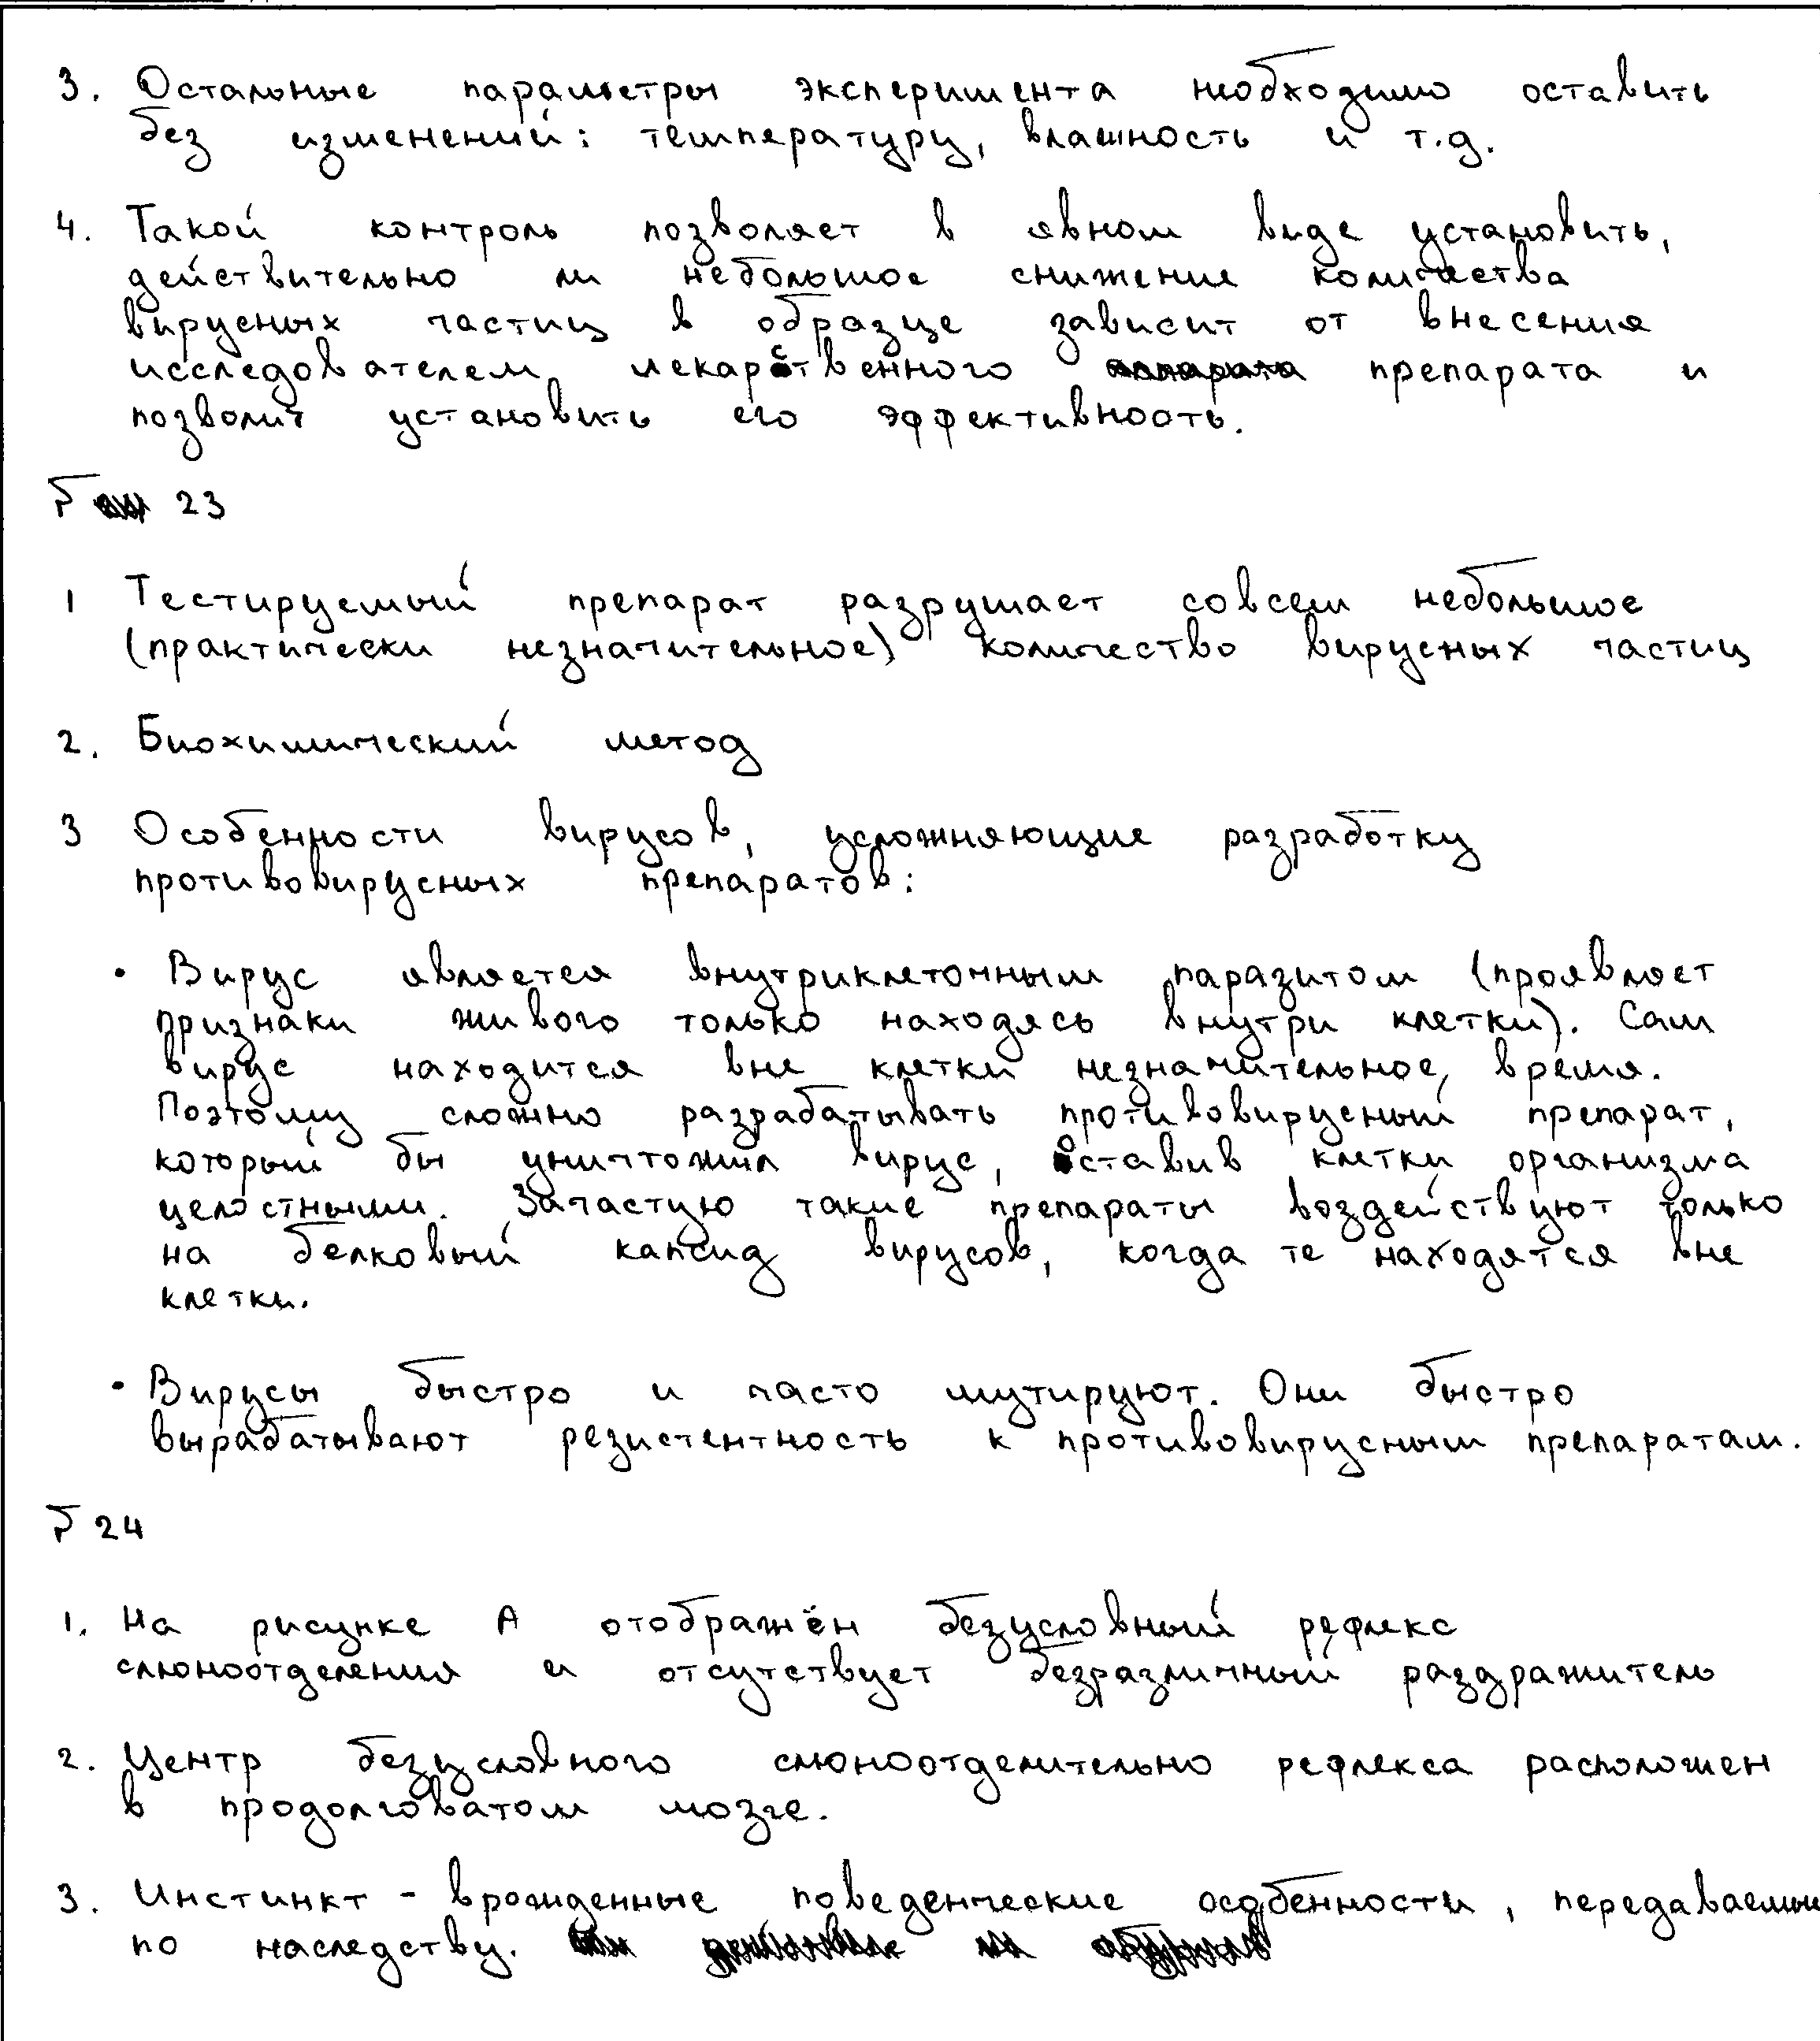 3. Остальные параметры эксперимента необходимо оставить
без изменений: температуру, влажность и т.д.
4. Такой контроль позволяет в явном виде установить,
действительно ли небольшое снижение количества
вирусных частиц в образце зависит от внесения
исследователем лекарственного препарата и
позволит установить его эффективность.
23
1 Тестируемый препарат разрушает совсем небольшое
(практически незначительное) количество вирусных частиц
2. Биохимический метод
3 Особенности вирусов, усложняющие разработку
противовирусных препаратов:
• Вирус является внутриклеточным паразитом (проявляет
признаки живого только находясь внутри клетки). Сам
вирус находится вне клетки незначительное время.
Поэтому сложно разрабатывать противовирусный препарат,
который бы уничтожил вирус, оставив клетки организма
целостными. Зачастую такие препараты воздействуют только
на белковый капсид вирусов, когда те находятся вне
клетки.
• Вирусы быстро и часто мутируют. Они быстро
вырабатывают резистентность к противовирусным препаратам.
24
1. На рисунке А отображён безусловный рефлекс
слюноотделения и отсутствует безразличный раздражитель
2. Центр безусловного слюноотделительно рефлекса расположен
в продолговатом мозге.
3. Инстинкт - врожденные поведенческие особенности, передаваемые
по наследству.